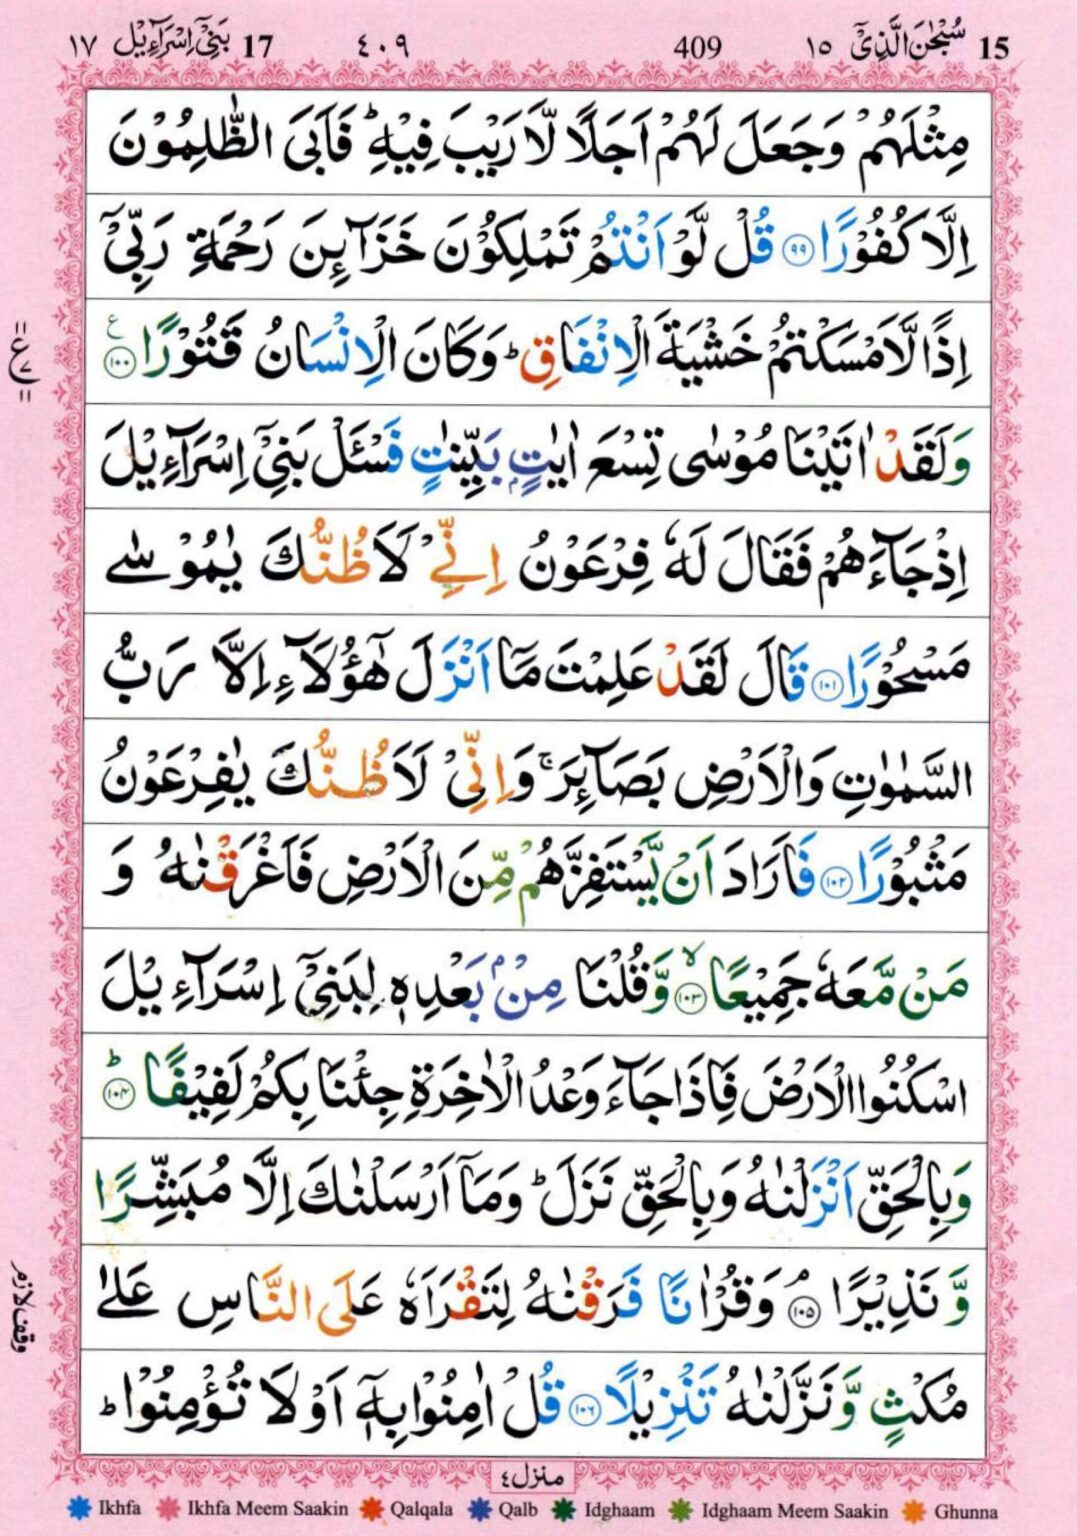 15 سُبْحٰنَ الَّذِيْۤ ١٥ 409 ٤٠٩ 17 بَنِيْۤ اِسْرَآءِيْل ١٧
مِثْلَهُمْ وَجَعَلَ لَهُمْ اَجَلًا لَّا رَيْبَ فِيْهِؕ فَاَبَى الظّٰلِمُوْنَ
اِلَّا كُفُوْرًا ۹۹ قُلْ لَّوْ اَنْتُمْ تَمْلِكُوْنَ خَزَآئِنَ رَحْمَةِ رَبِّيْۤ
اِذًا لَّاَمْسَكْتُمْ خَشْيَةَ الْاِنْفَاقِؕ وَكَانَ الْاِنْسَانُ قَتُوْرًا ۱۰۰ ع
وَلَقَدْ اٰتَيْنَا مُوْسٰى تِسْعَ اٰيٰتٍۭ بَيِّنٰتٍ فَسْـَٔلْ بَنِيْۤ اِسْرَآءِيْلَ
اِذْ جَآءَهُمْ فَقَالَ لَهٗ فِرْعَوْنُ اِنِّيْ لَاَظُنُّكَ يٰمُوْسٰى
مَسْحُوْرًا ۱۰۱ قَالَ لَقَدْ عَلِمْتَ مَاۤ اَنْزَلَ هٰٓؤُلَآءِ اِلَّا رَبُّ
السَّمٰوٰتِ وَالْاَرْضِ بَصَآئِرَۚ وَاِنِّيْ لَاَظُنُّكَ يٰفِرْعَوْنُ
مَثْبُوْرًا ۱۰۲ فَاَرَادَ اَنْ يَّسْتَفِزَّهُمْ مِّنَ الْاَرْضِ فَاَغْرَقْنٰهُ وَ
مَنْ مَّعَهٗ جَمِيْعًاۙ ۱۰۳ وَّقُلْنَا مِنْۢ بَعْدِهٖ لِبَنِيْۤ اِسْرَآءِيْلَ
اسْكُنُوا الْاَرْضَ فَاِذَا جَآءَ وَعْدُ الْاٰخِرَةِ جِئْنَا بِكُمْ لَفِيْفًاؕ ۱۰۴
وَبِالْحَقِّ اَنْزَلْنٰهُ وَبِالْحَقِّ نَزَلَؕ وَمَاۤ اَرْسَلْنٰكَ اِلَّا مُبَشِّرًا
وَّنَذِيْرًاۘ ۱۰۵ وَقُرْاٰنًا فَرَقْنٰهُ لِتَقْرَاَهٗ عَلَى النَّاسِ عَلٰى
مُكْثٍ وَّنَزَّلْنٰهُ تَنْزِيْلًا ۱۰۶ قُلْ اٰمِنُوْا بِهٖۤ اَوْ لَا تُؤْمِنُوْاؕ
ع ٧
وقف لازم
منزل ٤
Ikhfa Ikhfa Meem Saakin Qalqala Qalb Idghaam Idghaam Meem Saakin Ghunna